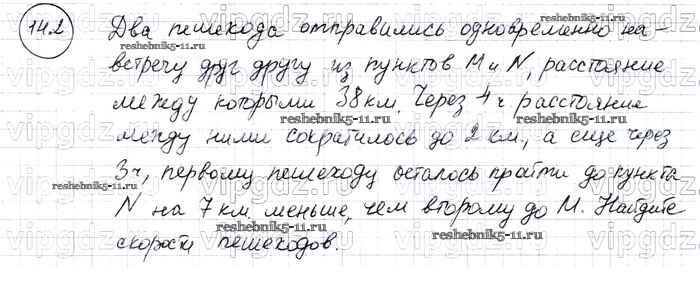 14.2 Два пешехода отправились одновременно на-
встречу друг другу из пунктов M и N, расстояние
между которыми 38 км. Через 4 ч расстояние
между ними сократилось до 2 км, а еще через
3 ч, первому пешеходу осталось пройти до пункта
N на 7 км меньше, чем второму до M. Найдите
скорости пешеходов.
reshebnik5-11.ru
reshebnik5-11.ru
reshebnik5-11.ru
reshebnik5-11.ru
vipgdz